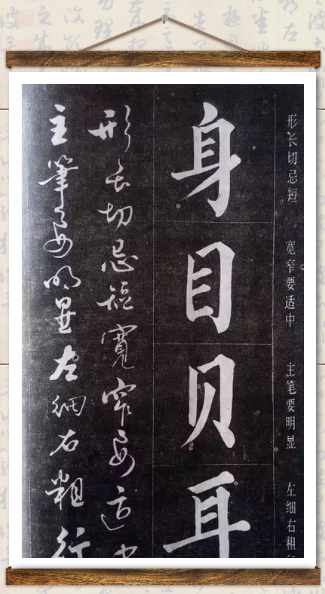 形长切忌短 宽窄要适中 主笔要明显 左细右粗
身目贝耳
形长切忌短宽窄要适中
主笔要明显左细右粗行